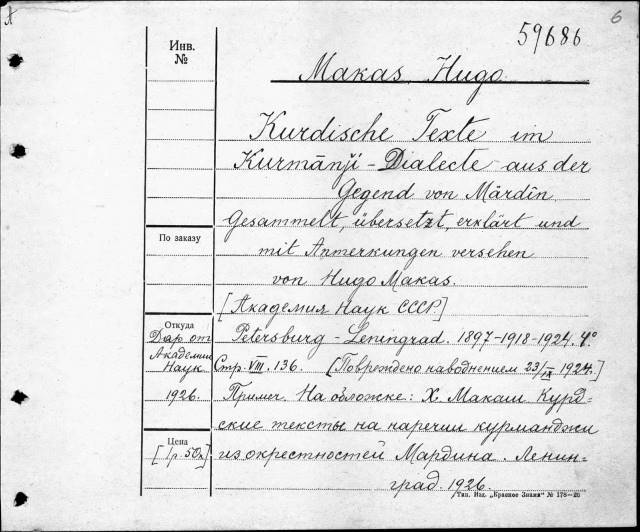 59686
6
Инв.
№
Makas, Hugo.
Kurdische Texte im
Kurmānǰi-Dialecte aus der
Gegend von Märdin.
Gesammelt, übersetzt, erklärt und
mit Anmerkungen versehen
von Hugo Makas.
[Академия Наук СССР.]
По заказу
Petersburg - Leningrad. 1897-1918-1924. 4°
Стр. VIII. 136. [Повреждено наводнением 23/IX 1924.]
Примеч. На обложке: Х. Макаш. Курд-
ские тексты на наречии курманджи
из окрестностей Мардина. Ленин-
град. 1926.
Откуда
Дар от
Академии
Наук
1926.
Цена
[1р.50к]
Тип. Изд. „Красное Знамя" № 178—26